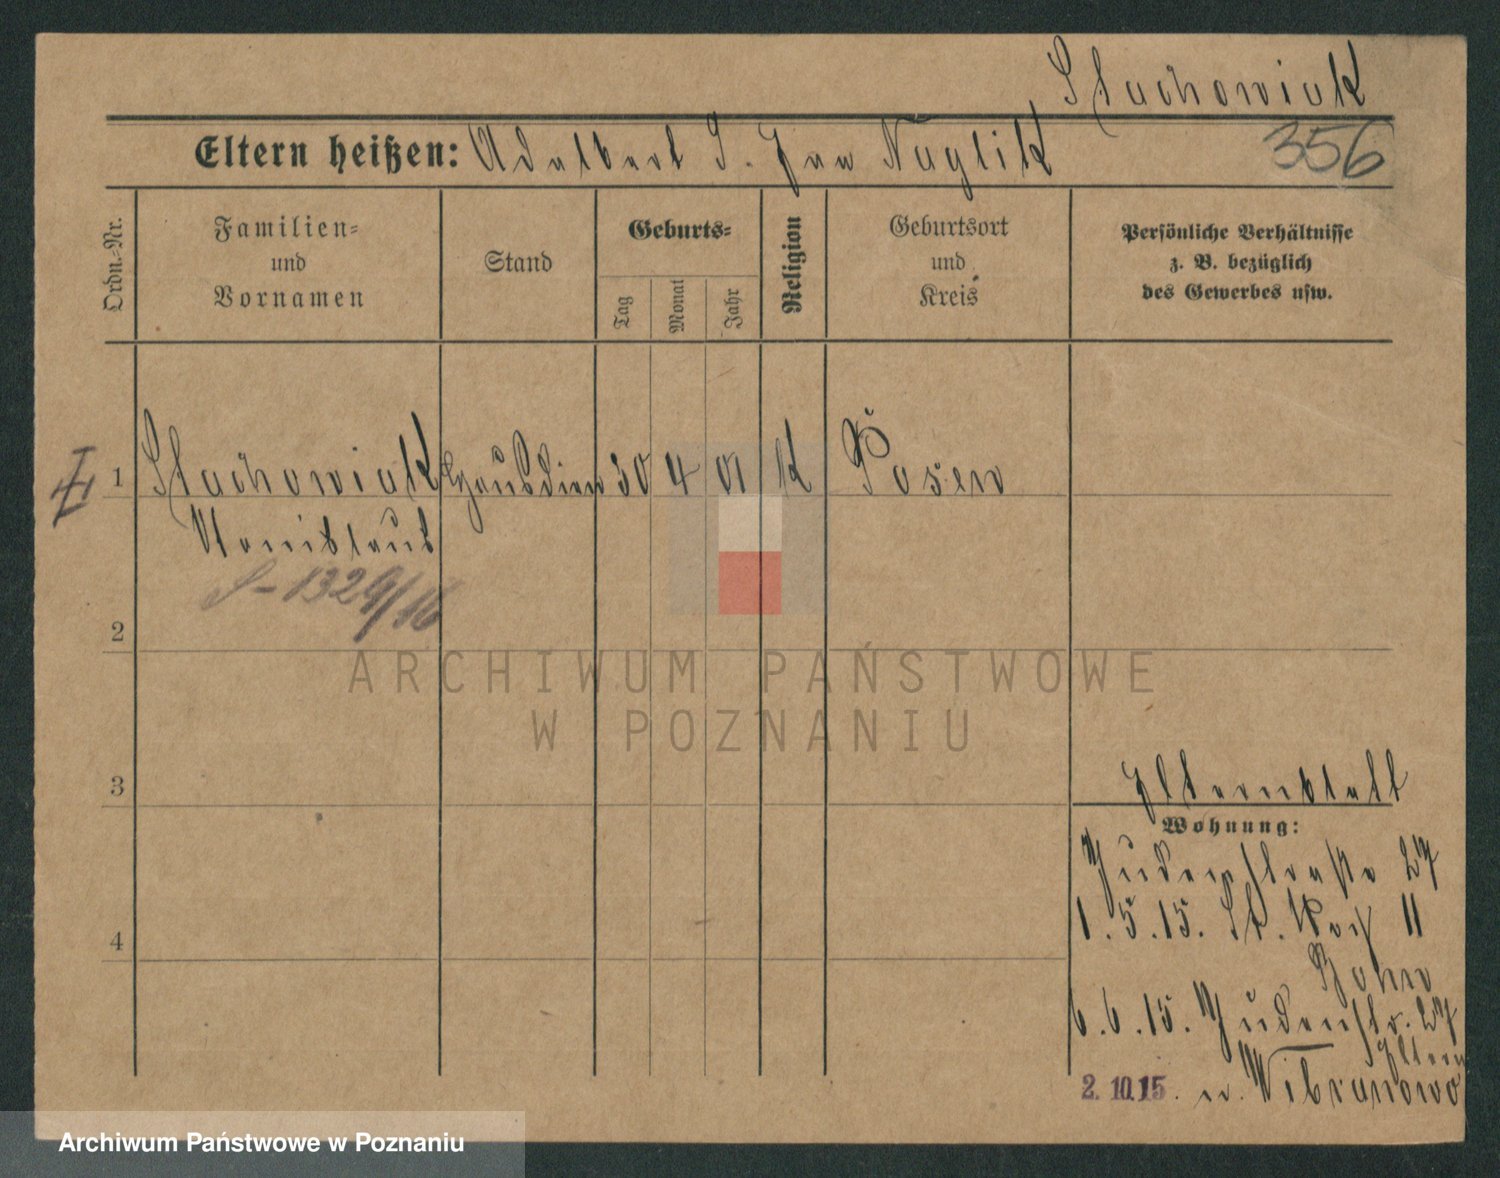 Stachowiak
Eltern heißen: Adalbert S. Jva Naglik
356
Ordn.-Nr.
Familien-
und
Vornamen
Stand
Geburts-
Tag
Monat
Jahr
Religion
Geburtsort
und
Kreis
Persönliche Verhältnisse
z. B. bezüglich
des Gewerbes usw.
1 Stachowiak Hausdien 30 4 01 K Posen
Stanislaus
S-1329/16
2
ARCHIWUM PAŃSTWOWE
W POZNANIU
3
Elternblatt
Wohnung:
Judenstraße 27
1.5.15. St. 11
6.6.15. Judenstr. 27
Eltern
2.10.15. n. Wibranowo
4
Archiwum Państwowe w Poznaniu